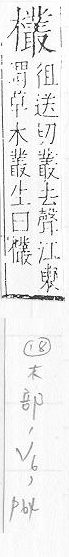 欉
徂送切叢去聲江東
謂草木叢生曰欉
18
木部, V6, p64